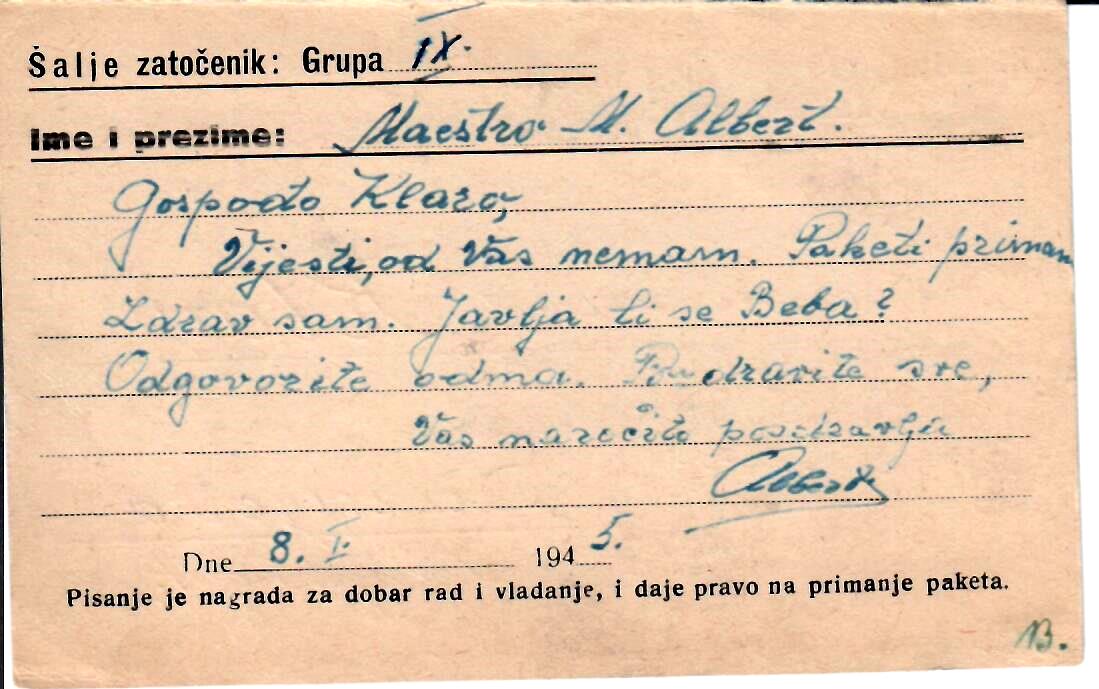 Šalje zatočenik: Grupa IX.
Ime i prezime: Maestro M. Albert.
Gospođo Klaro,
Vijesti, od Vas nemam. Paketi primam
Zdrav sam. Javlja li se Beba?
Odgovorite odma. Pozdravite sve,
Vas naročito pozdravlja
Albert
Dne 8. I. 1945.
Pisanje je nagrada za dobar rad i vladanje, i daje pravo na primanje paketa.
B.